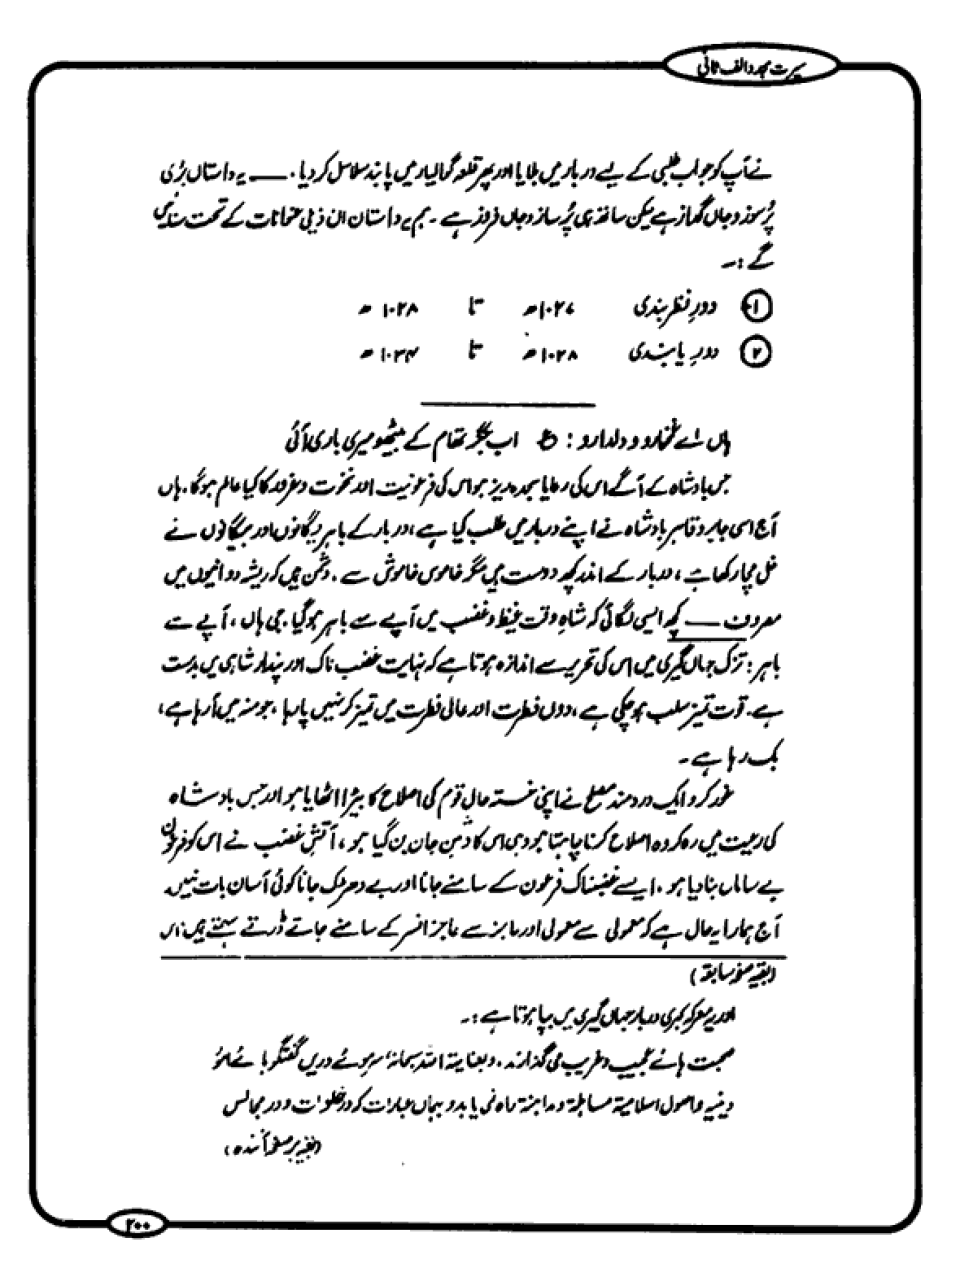 سیرت مجدد الف ثانی
نے آپ کو جواب طلبی کے لیے دربار میں بلایا اور پھر قلعہ گوالیار میں پابند سلاسل کر دیا ۔ —— یہ داستاں بڑی
پُرسوز و جاں گداز ہے لیکن ساتھ ہی پُرساز و جاں فروز ہے ۔ ہم یہ داستان ان ذیلی عنوانات کے تحت سنائیں
گے :۔
① دورِ نظر بندی ۱۰۲۷ھ تا ۱۰۲۸ھ
② دورِ پابندی ۱۰۲۸ھ تا ۱۰۳۴ھ
ہاں اے غمخوارو و دلدارو : ع اب جگر تھام کے بیٹھو میری باری آئی
جس بادشاہ کے آگے اس کی رعایا سجدہ ریز ہو اس کی فرعونیت اور نخوت و غرور کا کیا عالم ہوگا ۔ ہاں
آج اسی جابر و قاہر بادشاہ نے اپنے دربار میں طلب کیا ہے ، دربار کے باہر یگانوں اور بیگانوں نے
غل مچا رکھا ہے ، دربار کے اندر کچھ دوست ہیں مگر خاموش خاموش سے ۔ دشمن ہیں کہ ریشہ دوانیوں میں
مصروف —— کچھ ایسی لگائی کہ شاہِ وقت غیظ و غضب میں آپے سے باہر ہو گیا ۔ جی ہاں ، آپے سے
باہر : تزک جہاں گیری میں اس کی تحریر سے اندازہ ہوتا ہے کہ نہایت غضب ناک اور پندار شاہی میں بدمست
ہے ۔ قوت تمیز سلب ہو چکی ہے ، دوں فطرت اور عالی فطرت میں تمیز کر نہیں پا رہا ، جو منہ میں آ رہا ہے ،
بک رہا ہے ۔
غور کرو ایک درد مند مصلح نے اپنی خستہ حال قوم کی اصلاح کا بیڑا اٹھایا ہو اور جس بادشاہ
کی رعیت میں رہ کر وہ اصلاح کرنا چاہتا ہو وہی اس کا دشمن جان بن گیا ہو ، آتشِ غضب نے اس کو فرعون
بے ساماں بنا دیا ہو ۔ ایسے غضبناک فرعون کے سامنے جانا اور بے دھڑک جانا کوئی آسان بات نہیں ۔
آج ہمارا یہ حال ہے کہ معمولی سے معمولی اور عاجز سے عاجز افسر کے سامنے جاتے ڈرتے سہمتے ہیں ، اس
(بقیہ صفحہ سابقہ)
اور یہ معرکہ کبریٰ دربار جہاں گیری میں بپا ہوتا ہے :۔
صحبت ہائے عجیب و غریب می گذارند ۔ و بعنایۃ اللہ سبحانہٗ سر موئے دریں گفتگو ہائے امور
دینیہ و اصول اسلامیۃ مساہلۃ و مداہنۃ راہ نمی یابد و بہماں عبارات کہ در خلوات و در مجالس
(بقیہ بر صفحہ آئندہ)
۲۰۰